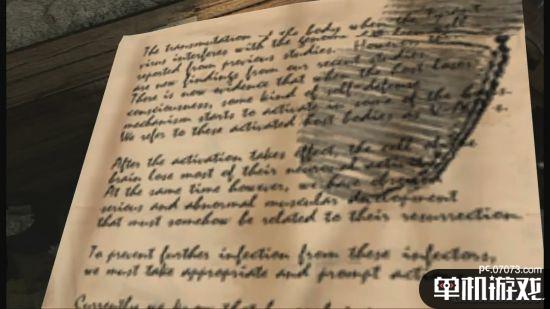 The transmutation of the body, when the Tyrant
virus interferes with the genome, has been
reported from previous studies. However,
are new findings from our recent studies
There is now evidence that when the host loses
consciousness, some kind of self-defense
mechanism starts to activate in some of the
We refer to these activated host bodies as
After the activation takes effect, the cells of the
brain lose most of their neuronal
At the same time however, we have observed
serious and abnormal muscular development
that must somehow be related to their resurrection
To prevent further infection from these infectors,
we must take appropriate and prompt
Currently we know that
PC.07073.com
单机游戏